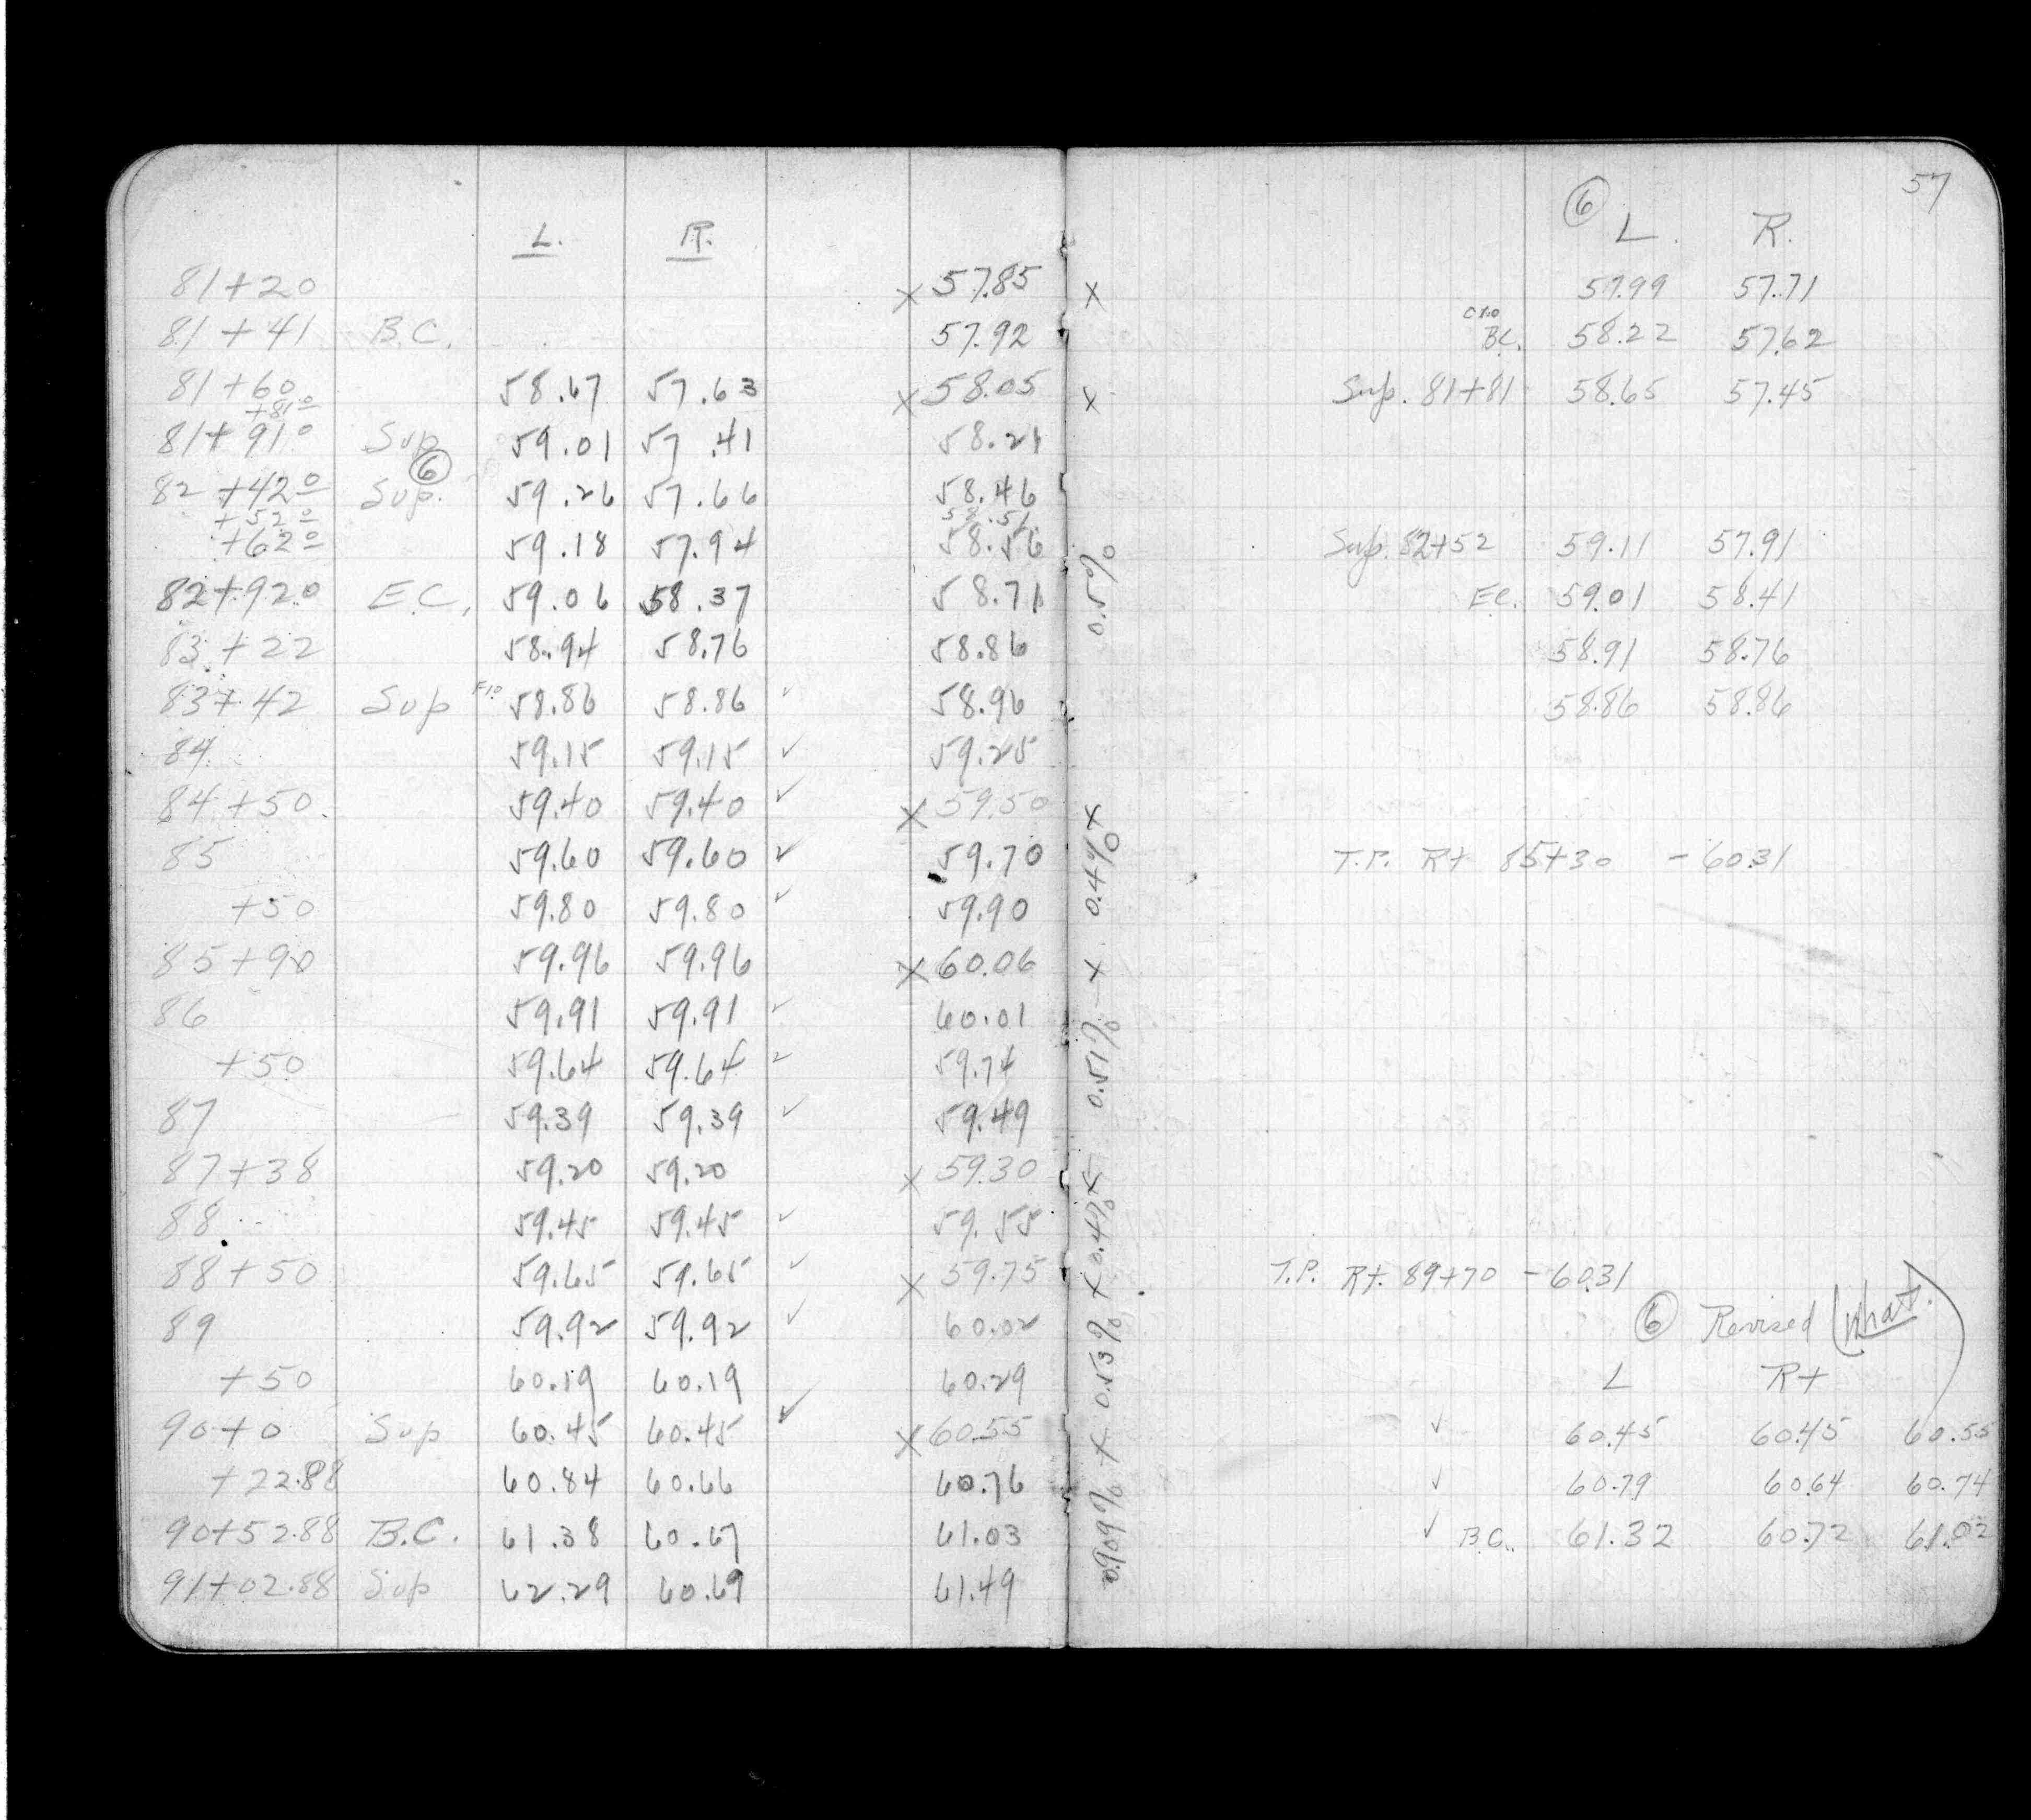 L. R.
81+20 x 57.85
81+41 B.C. 57.92
81+60 58.67 57.63 x 58.05
+81º
81+91º Sup 59.01 57.41 58.21
⑥
82+42º Sup. 59.26 57.66 58.46
+52º 58.51
+62º 59.18 57.94 58.56
82+920 E.C. 59.06 58.37 58.71
83+22 58.94 58.76 58.86
83+42 Sup 58.86 58.86 ✓ 58.96
84 59.15 59.15 ✓ 59.25
84+50 59.40 59.40 ✓ x 59.50
85 59.60 59.60 ✓ 59.70
+50 59.80 59.80 ✓ 59.90
85+90 59.96 59.96 x 60.06
86 59.91 59.91 ✓ 60.01
+50 59.64 59.64 ✓ 59.74
87 59.39 59.39 ✓ 59.49
87+38 59.20 59.20 x 59.30
88 59.45 59.45 ✓ 59.55
88+50 59.65 59.65 ✓ x 59.75
89 59.92 59.92 ✓ 60.02
+50 60.19 60.19 60.29
90+0 Sup 60.45 60.45 ✓ x 60.55
+22.88 60.84 60.66 60.76
90+52.88 B.C. 61.38 60.67 61.03
91+02.88 Sup 62.29 60.69 61.49
0.909% x 0.53% x 0.4% x 0.51% x 0.4% x 0.5% x x
57
⑥
L. R.
57.99 57.71
B.C. 58.22 57.62
Sup. 81+81 58.65 57.45
Sup. 82+52 59.11 57.91
E.C. 59.01 58.41
58.91 58.76
58.86 58.86
T.P. Rt 85+30 - 60.31
T.P. Rt. 89+70 - 60.31
⑥ Revised (What.)
L Rt
✓ 60.45 60.45 60.55
✓ 60.79 60.64 60.74
✓ B.C. 61.32 60.72 61.02